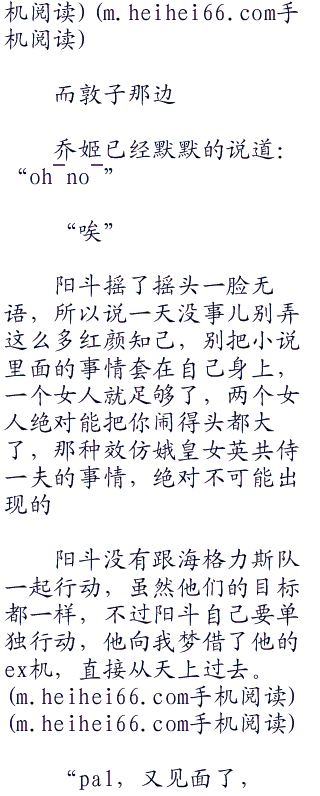 机阅读)(m.heihei66.com手
机阅读)
而敦子那边
乔姬已经默默的说道:
“oh¯no¯”
“唉”
阳斗摇了摇头一脸无
语，所以说一天没事儿别弄
这么多红颜知己，别把小说
里面的事情套在自己身上，
一个女人就足够了，两个女
人绝对能把你闹得头都大
了，那种效仿娥皇女英共侍
一夫的事情，绝对不可能出
现的
阳斗没有跟海格力斯队
一起行动，虽然他们的目标
都一样，不过阳斗自己要单
独行动，他向我梦借了他的
ex机，直接从天上过去。
(m.heihei66.com手机阅读)
(m.heihei66.com手机阅读)
“pal，又见面了，